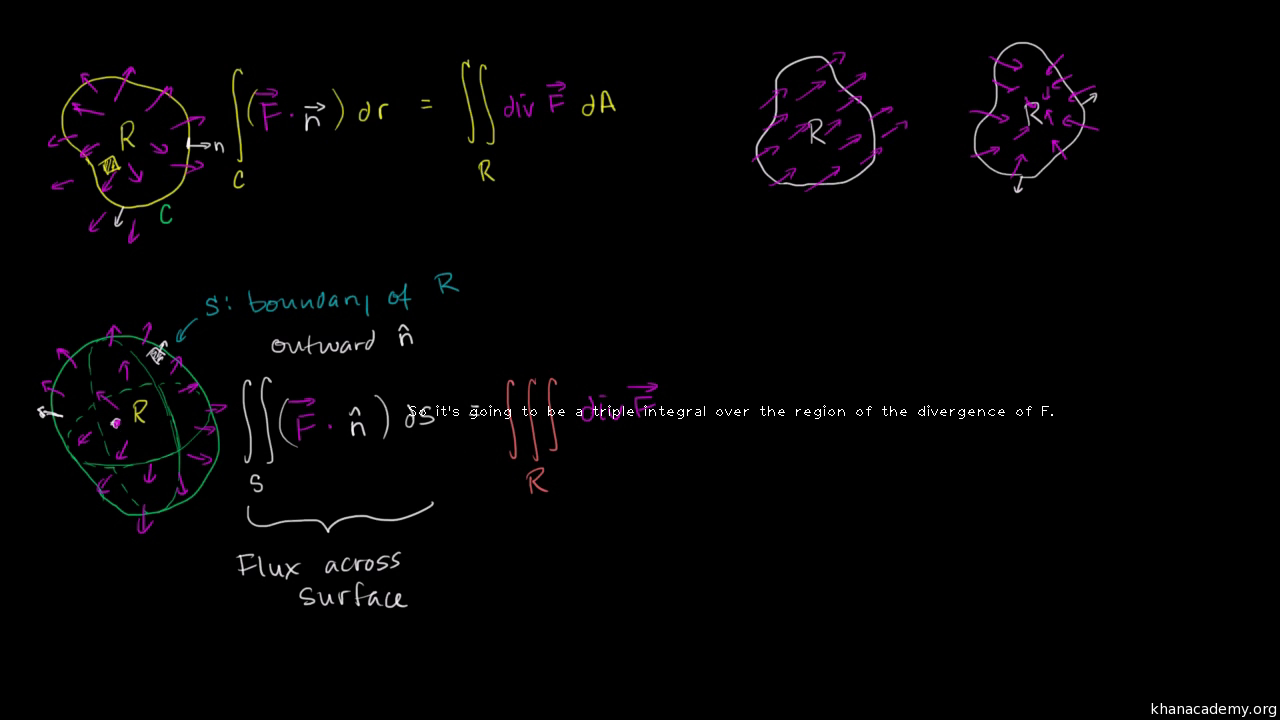 R
n
C
∫ ( F⃗ · n⃗ ) dr = ∬ div F⃗ dA
C
R
R
R
S: boundary of R
outward n̂
R
∬ ( F⃗ · n̂ ) dS = ∭ div F⃗
So it's going to be a triple integral over the region of the divergence of F.
S
R
Flux across
surface
khanacademy.org